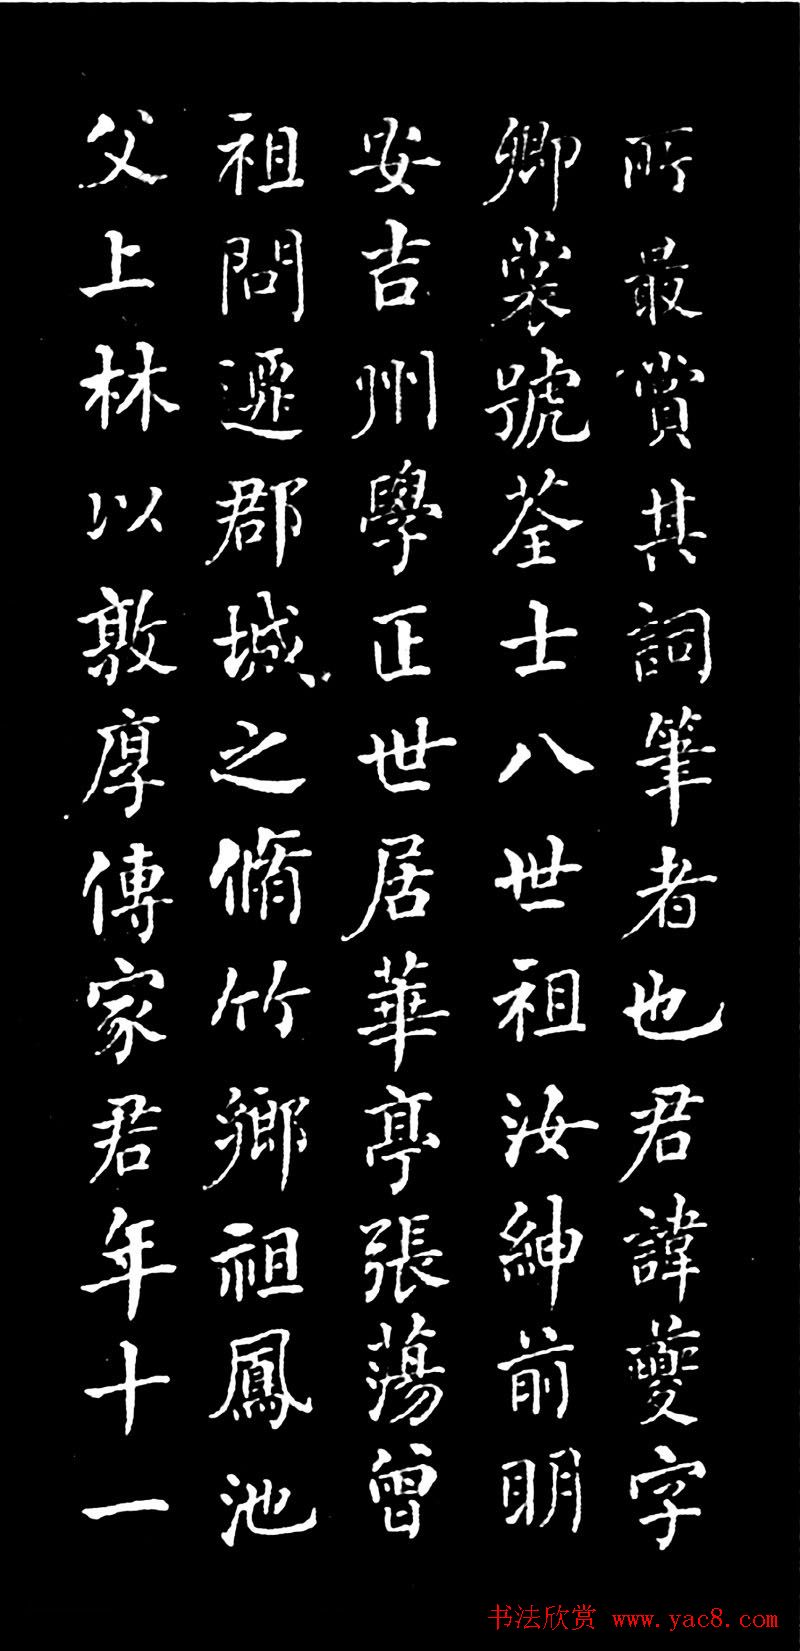 所最賞其詞筆者也君諱夔字
卿裳號荃士八世祖汝紳前明
安吉州學正世居華亭張蕩曾
祖問遷郡城之脩竹鄉祖鳳池
父上林以敦厚傳家君年十一
书法欣赏 www.yac8.com